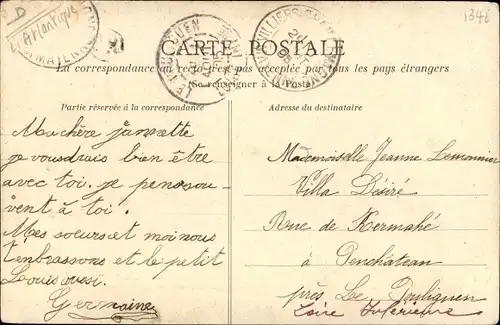 D
L'Atlantique
1346
CARTE POSTALE
La correspondance au recto n'est pas acceptée par tous les pays étrangers
(Se renseigner à la Poste)
Partie réservée à la correspondance
Ma chère jannette
je voudrais bien être
avec toi. je pense sou-
vent à toi.
Mes soeurs et moi nous
t'enbrassons et le petit
Louis ausi.
Germaine
Adresse du destinataire
Mademoiselle Jeanne Lemonnier
Villa Désiré
Rue de Kermahé
à Penchateau
près Le Pouliguen
Loire Inférieure